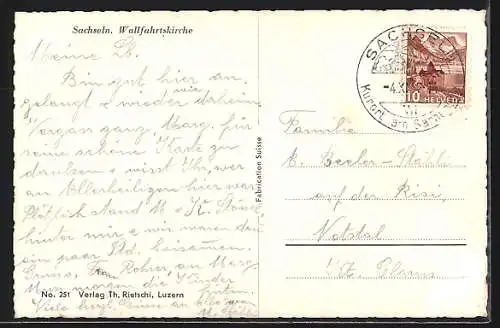 Sachseln. Wallfahrtskirche
Meine Lb.
Bin gut hier an,
gelangt & wieder daheim,
mir
Vergass ganz, Marg. für
seine schöne Karte zu
danken & wisst Ihr, wer
an Allerheiligen hier war
Plötzlich stand M. & K.
hinter mir & wir waren den
ein paar Std. beisamen.
Frau Rohrer, an Marg.
morgen die Kinder
Viele herzl. Grüsse an
No. 251 Verlag Th. Rietschi, Luzern
Fabrication Suisse
SACHSELN
-4.X
Kurort am Sarner
10 HELVETIA
Familie
A. Beeler-Stähli
auf der Risi,
Netstal
Kt. Glarus